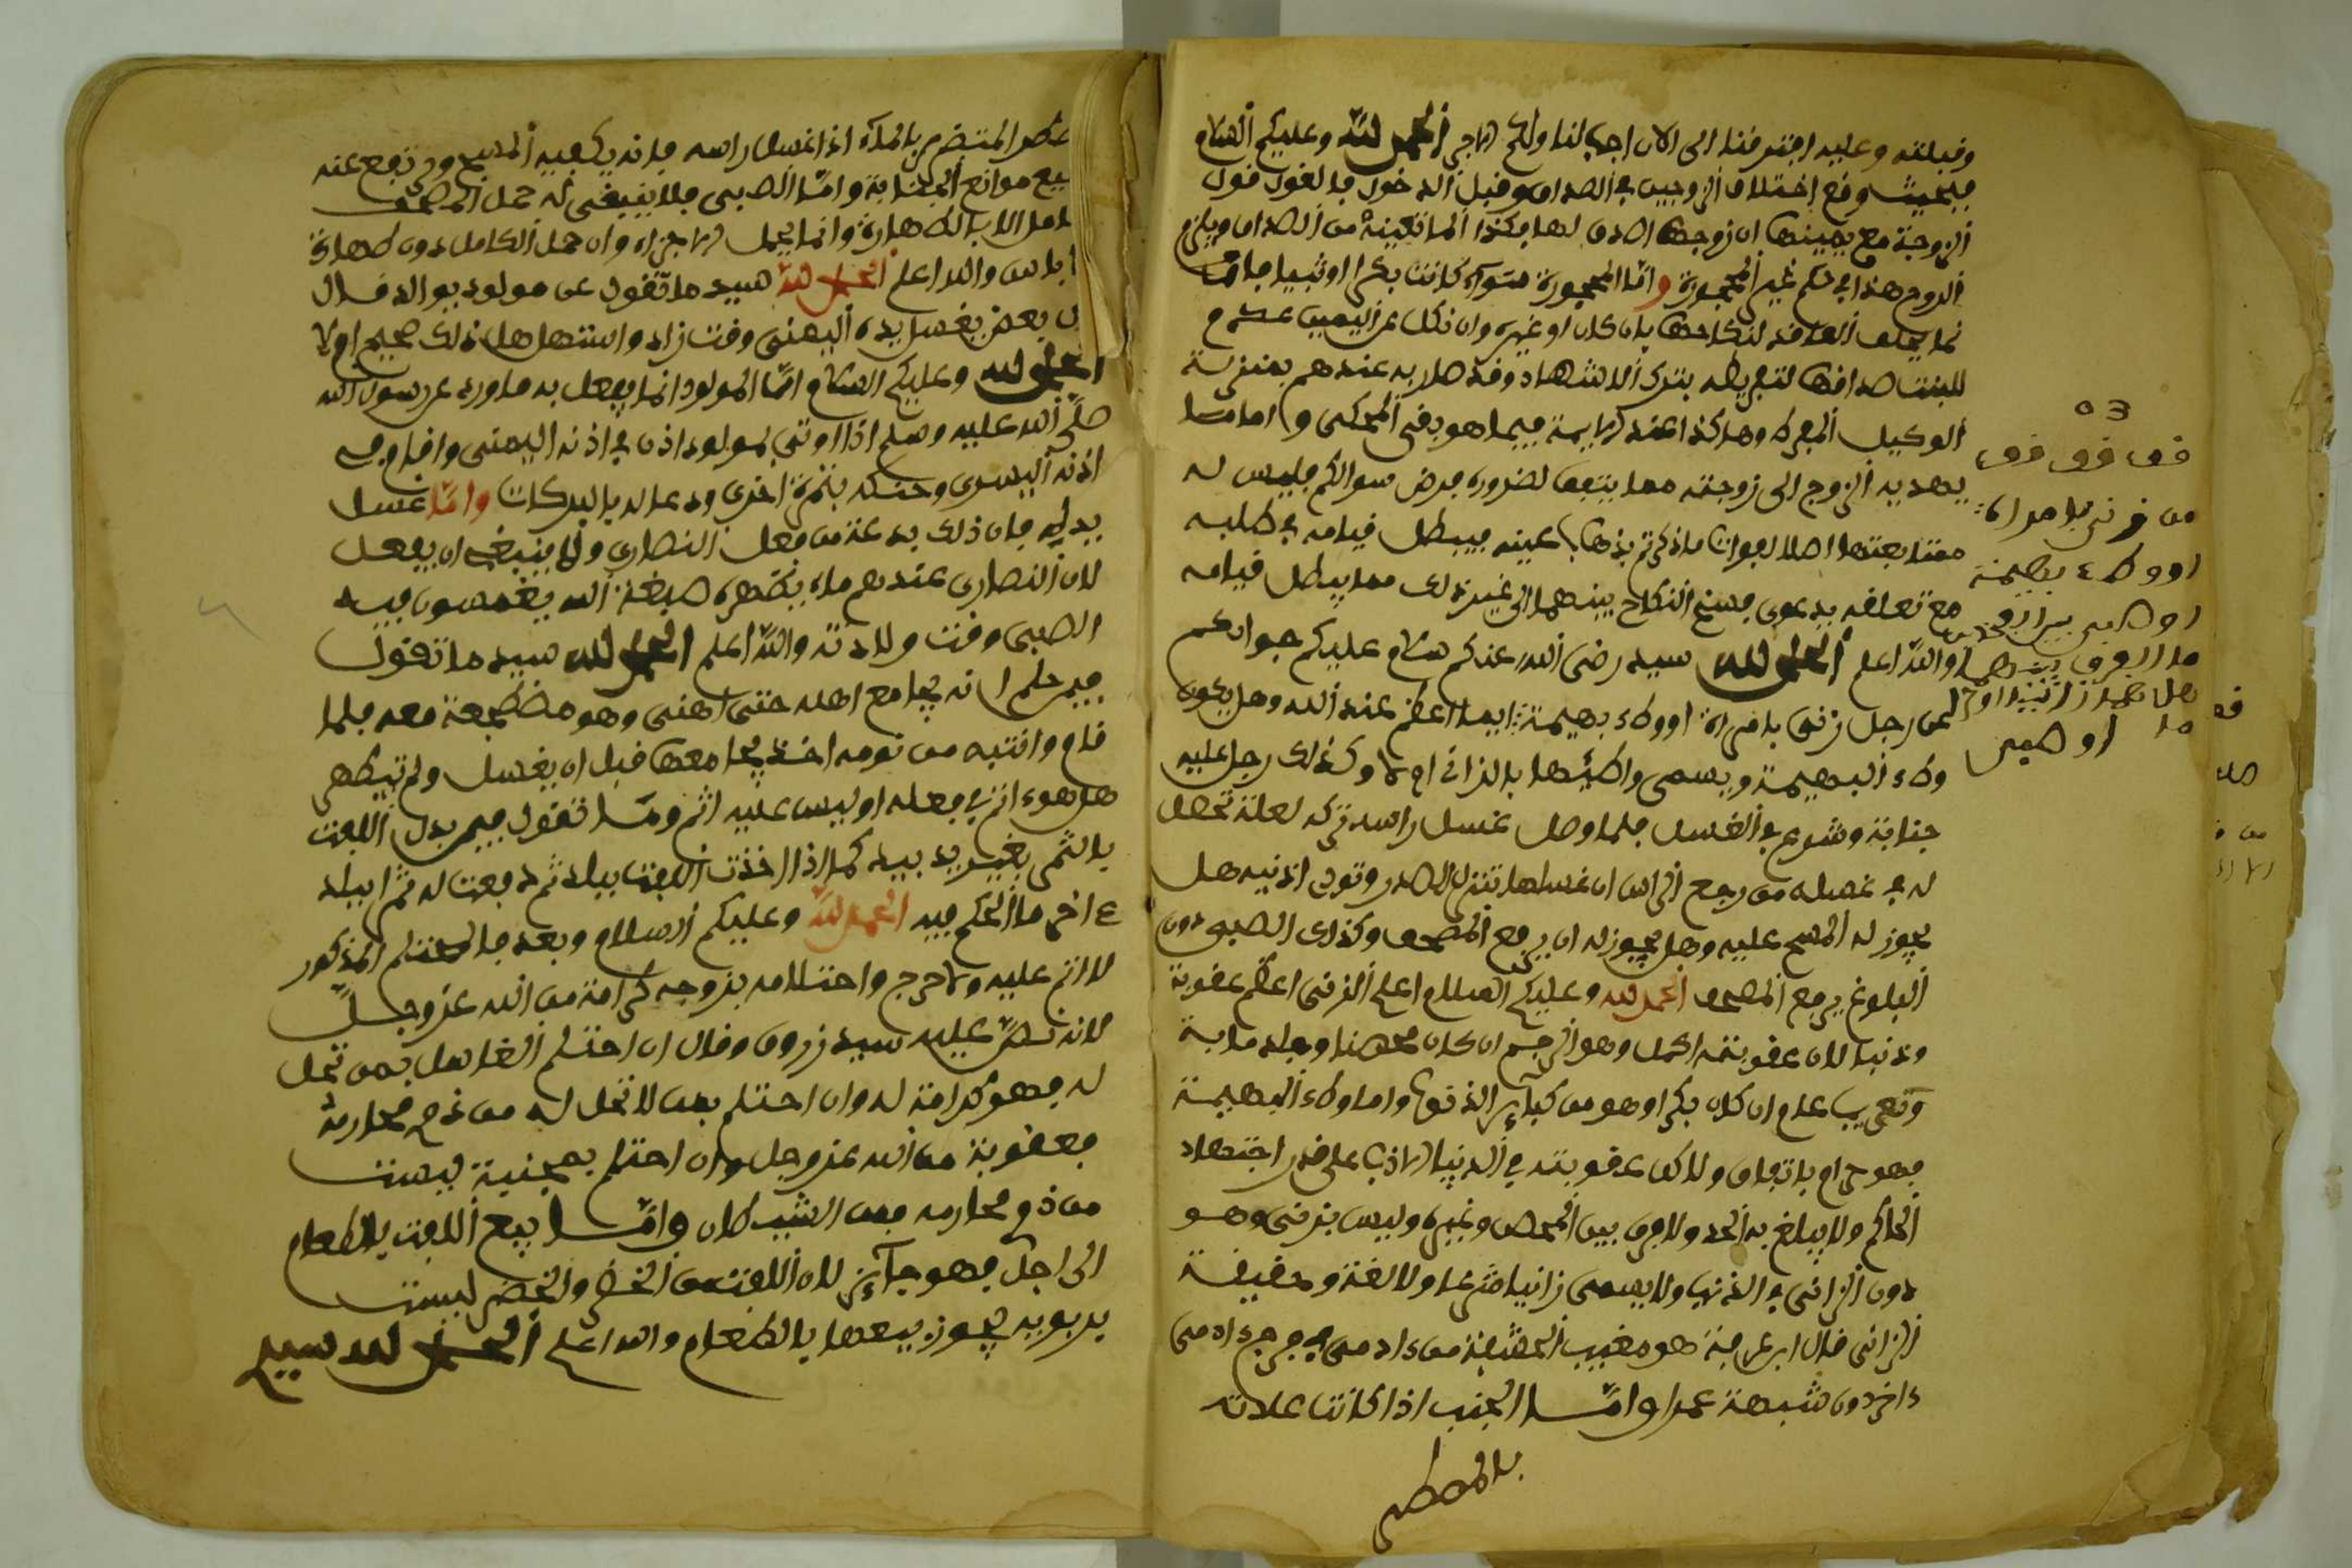 وقبلته وعليه افترقنا الى الان اجب لنا ولكم الاجر الحمد لله وعليكم السلام
فبحيث وقع اختلاف الزوجين في الصداق وقبل الدخول فالقول قول
الزوجة مع يمينها ان زوجها اصدق لها وكذا لما تعينه من الصداق ويلزم
الزوج هذا في حكم غير المحجورة واما المحجورة سواء كانت بكرا او ثيبا فانما
انما يحلف العاقد لنكاحها بان كان او غيره وان نكل عن اليمين غرم
للبنت صداقها لتفريطه بترك الاشهاد وقد صار به عندهم بمنزلة
الوكيل المفرط وهاكذا عند الايمة فيما هو يفتى المحكى واما ما
يهديه الزوج الى زوجته مما ينتفع لضرورة فرض سوالكم فليس له
متابعتها اصلا لفوات ما ذكرتم بذهاب عينه فيبطل قيامه في طلبه
مع تعلقه بدعوى فسخ النكاح بينهما الى غير ذلك مما يبطل قيامه
والله اعلم الحمد لله سيد رضي الله عنكم سلام عليكم جوابكم
عن رجل زنى بامراة او وطء بهيمة ايهما اعظم عند الله وهل يكون
وطء البهيمة ويسمى واطئها بالزاني ام لا وكذلك رجل عليه
جنابة وشرع في الغسل فلما وصل غسل راسه تركه لعلة تحصل
له في غسله من وجع الراس ان غسلها تنزل للصدر وتون اذنيه هل
يجوز له المسح عليه وهل يجوز له ان يرفع المصحف وكذلك الصبي دون
البلوغ يرفع المصحف الحمد لله وعليكم السلام اعلم الزنى اعظم عقوبة
وذنبا لان عقوبته اكمل وهو الرجم ان كان محصنا وجلد ماية
وتغريب عام ان كان بكرا وهو من كباير الذنوب واما وطء البهيمة
فهو حرام باتفاق ولاكن عقوبته في الدنيا الادب على قدر اجتهاد
الحاكم ولا يبلغ به الحد ولا فرق بين المحصن وغيره وليس بزنى وهو
دون الزانى في الذنب ولا يسمى زانيا شرعا ولا لغة وحقيقة
الزانى قال ابن عرفة هو مغيب الحشفة من ءادمي في فرج ءادمي
ءاخر دون شبهة عمدا واما الجنب اذا كانت علاته
بالمطهر
03
قف قف قف
من زنى بامراة
او وطء بهيمة
ما الفرق بينهما
عضو المتضرر بالماء اذا غسل راسه فانه يكفيه المسح وترتفع عنه
جميع موانع الجنابة واما الصبي فلا ينبغي له حمل المصحف
كامل الا بالطهارة وانما يحمل الاجزاء وان حمل الكامل دون طهارة
باس والله اعلم الحمد لله سيد ما تقول عن مولود بوالد قال
بعض يغسل يده اليمنى وقت زاد واستهل هل ذلك صحيح ام لا
الحمد لله وعليكم السلام اما المولود انما يفعل به ما ورد عن رسول الله
صلى الله عليه وسلم اذا اوتي بمولود اذن في اذنه اليمنى واقام في
اذنه اليسرى وحنكه بتمرة اخرى ودعا له بالبركات واما غسل
يديه فان ذلك بدعة من فعل النصارى ولا ينبغي ان يفعل
لان النصارى عندهم ماء يتطهره صبغة الله يغمسون فيه
الصبي وقت ولادته والله اعلم الحمد لله سيد ما تقول
فيمن حلم انه يجامع اهله حتى امنى وهو مضطجعة معه فلما
قام وانتبه من نومه اخذ يجامعها قبل ان يغسل ولم يتطهر
هل هو اثم في فعله او ليس عليه اثم وما تقول فيمن بدل اللفت
بالتمر بغير يد بيد كما اذا اخذت اللفت ببلد ثم دفعت له تمرا ببلد
ءاخر ما الحكم فيه الحمد لله وعليكم السلام وبعد فالمحتلم المذكور
لا اثم عليه ولا حرج واحتلامه بزوجه كرامة من الله عز وجل
لانه نص عليه سيد زروق وقال ان احتلم الغاسل بمن تحل
له فهو كرامة له وان احتلم بمن لا تحل له من ذوي محارمه
فعقوبة من الله عز وجل وان احتلم بجنية ليست
من ذو محارمه فمن الشيطان واما بيع اللفت بالطعام
الى اجل فهو جايز لان اللفت من الخضر والخضر ليست
بربوية فيجوز بيعها بالطعام والله اعلم الحمد لله سيد